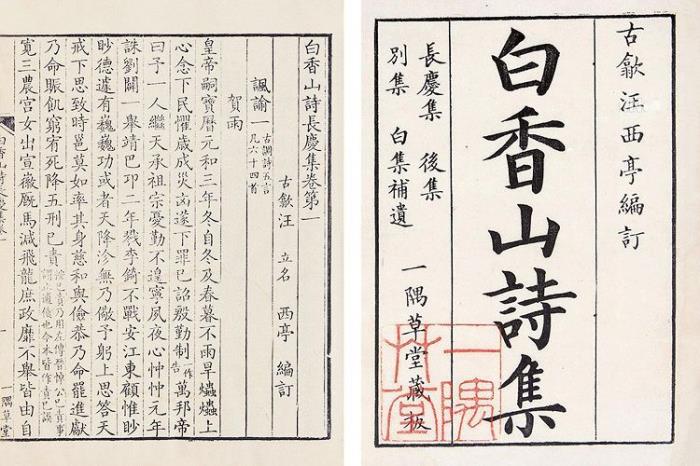 古歙汪西亭編訂
白香山詩集
長慶集 後集
別集 白集補遺
一隅草堂藏板
一隅
草堂
白香山詩長慶集卷第一
古歙汪 立名 西亭 編訂
諷諭一 古調詩五言 凡六十四首
賀雨
皇帝嗣寶曆元和三年冬自冬及春暮不雨旱爞爞上
心念下民懼歲成災凶遂下罪已詔殷勤制一作告萬邦帝
曰予一人繼天承祖宗憂勤不遑寧夙夜心忡忡元年
誅劉闢一舉靖巴邛二年戮李錡不戰安江東顧惟眇
眇德遽有巍巍功或者天降沴無乃儆予躬上思答天
戒下思致時邕莫如率其身慈和與儉恭乃命罷進獻
乃命賑飢窮宥死降五刑已責
已責乃用左傳晉悼公已責事
謂止逋債也今本皆作責已誤
寬三農宮女出宣徽廐馬減飛龍庶政靡不舉皆由自
白香山詩長慶集卷一
一隅草堂